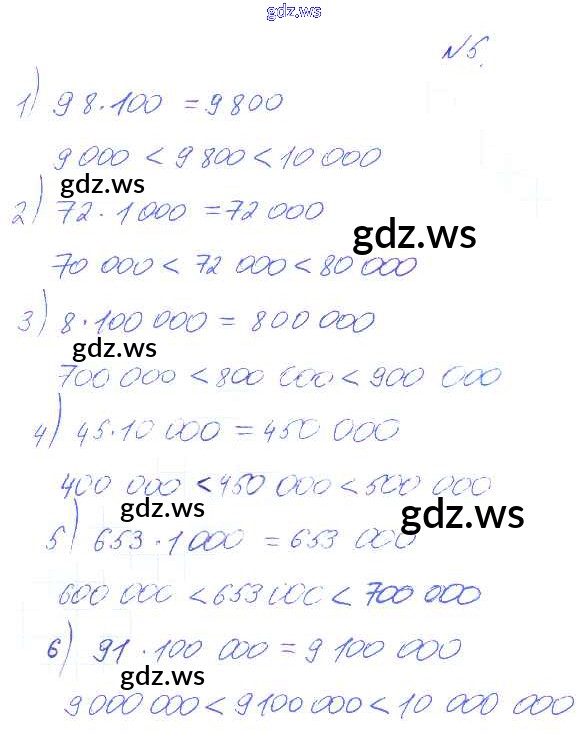 gdz.ws
№5.
1) 98·100 = 9800
9 000 < 9 800 < 10 000
gdz.ws
2) 72·1 000 = 72 000
gdz.ws
70 000 < 72 000 < 80 000
3) 8·100 000 = 800 000
gdz.ws
700 000 < 800 000 < 900 000
4) 45·10 000 = 450 000
400 000 < 450 000 < 500 000
gdz.ws
gdz.ws
5) 653·1 000 = 653 000
600 000 < 653 000 < 700 000
6) 91·100 000 = 9 100 000
gdz.ws
9 000 000 < 9 100 000 < 10 000 000